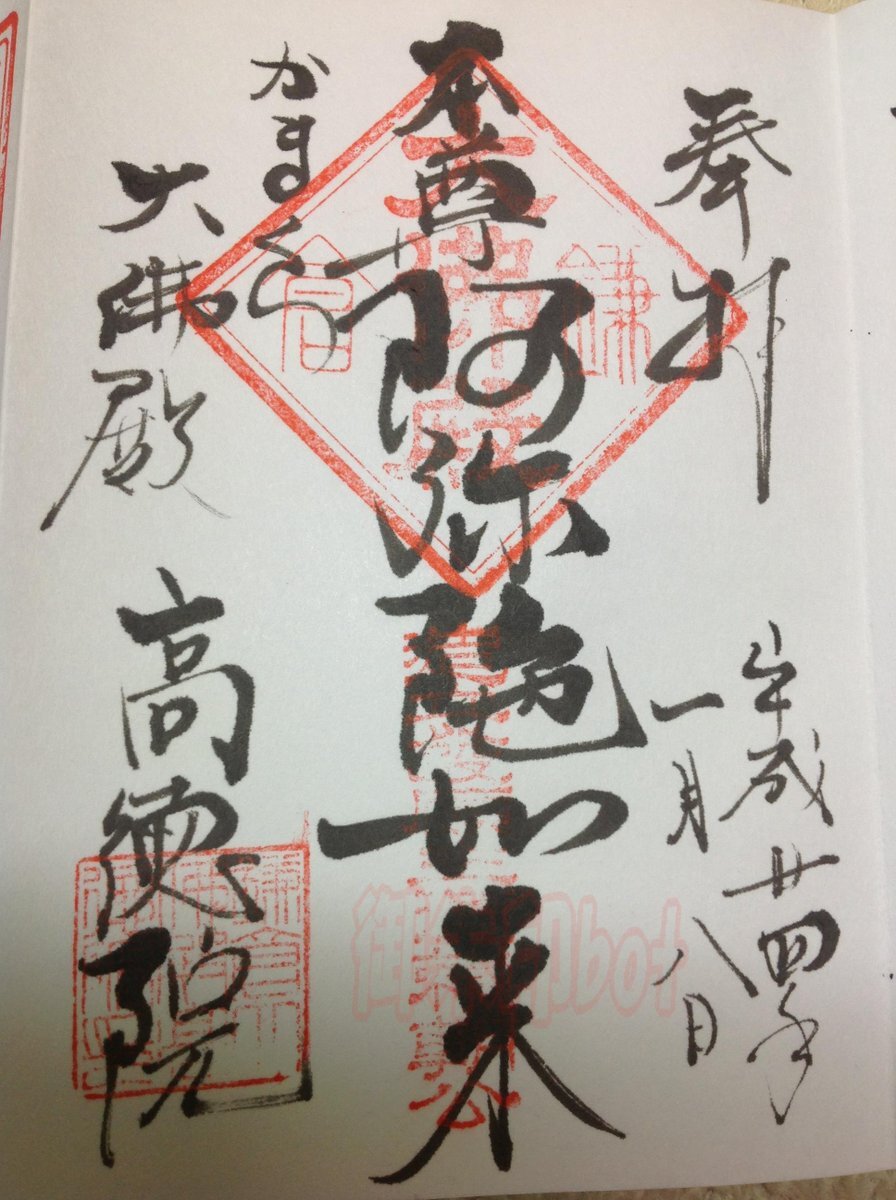 奉拝
平成廿四年
一月八日
本尊
阿弥陀如来
かまくら
大佛殿
高徳院
鎌
倉
御朱印bot